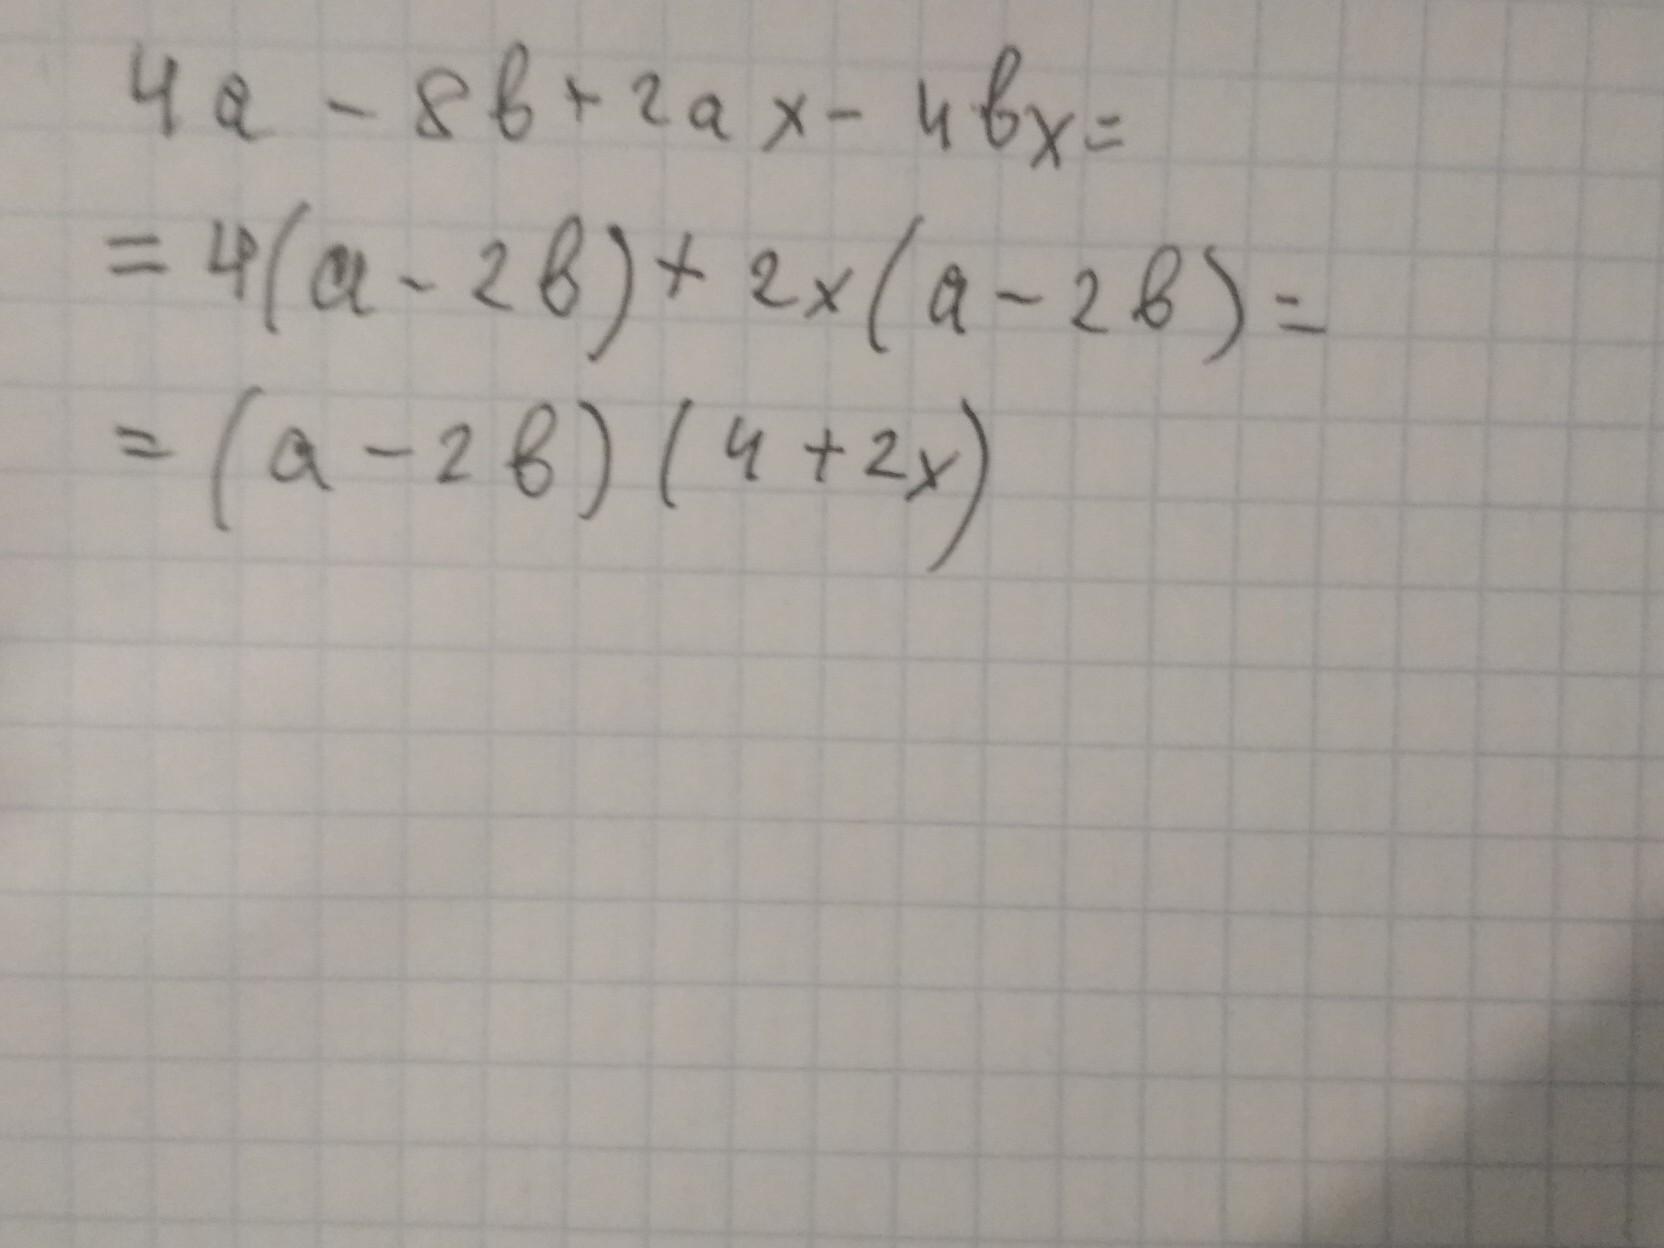 4a - 8b + 2ax - 4bx =
= 4(a - 2b) + 2x(a - 2b) =
= (a - 2b)(4 + 2x)